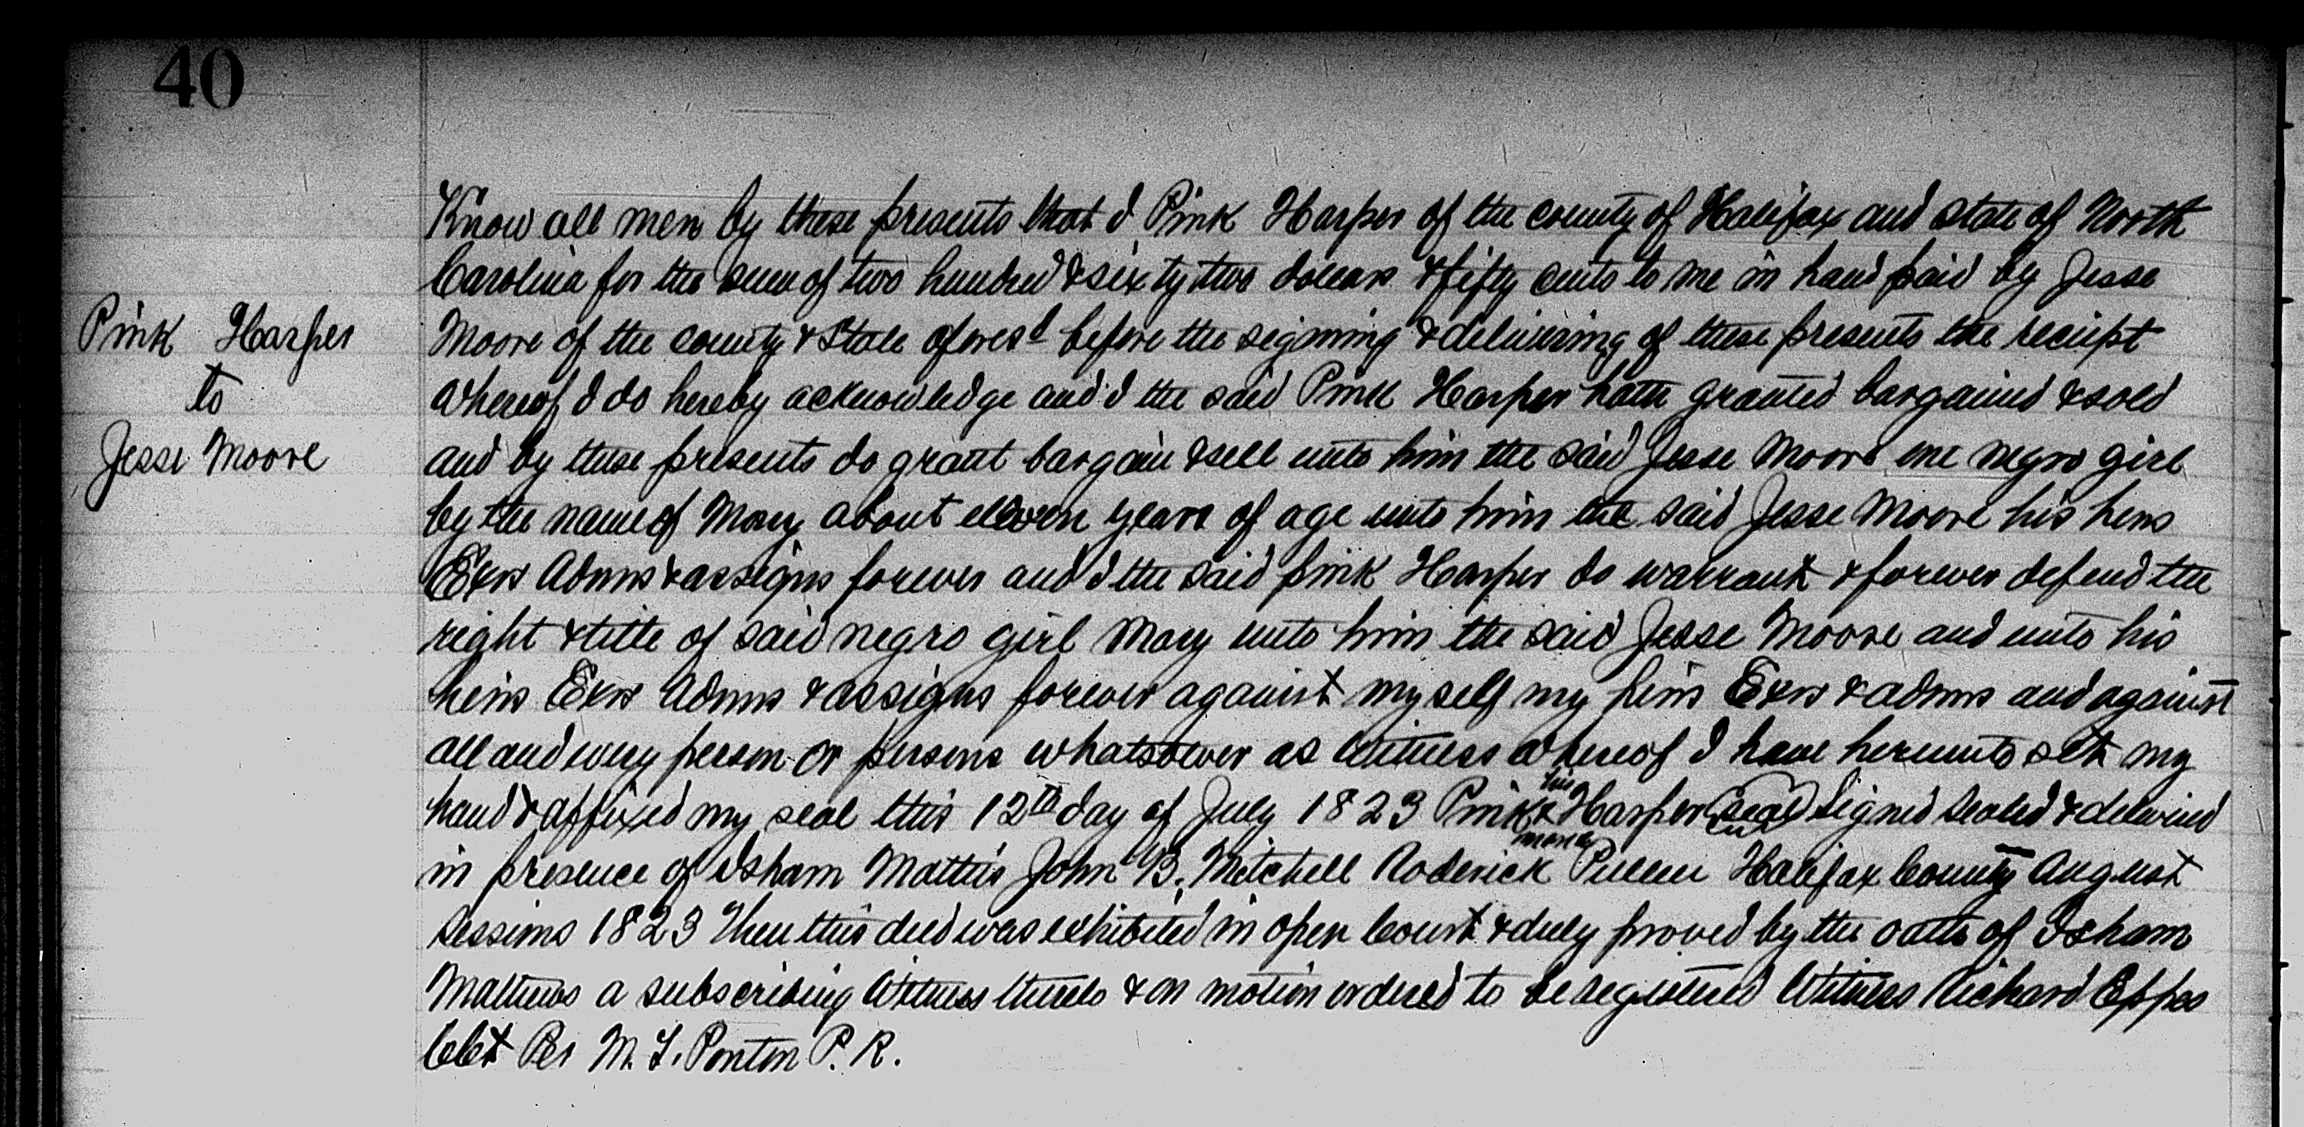 40
Pink Harper
to
Jesse Moore
Know all men by these presents that I Pink Harper of the county of Halifax and state of North
Carolina for the sum of two hundred & sixty two dollars & fifty cents to me in hand paid by Jesse
Moore of the county & State afores^d before the signing & delivering of these presents the reciept
whereof I do hereby acknowledge and I the said Pink Harper hath granted bargained & sold
and by these presents do grant bargain & sell unto him the said Jesse Moore one negro girl
by the name of Mary about eleven years of age unto him the said Jesse Moore his heirs
Exrs Admrs & assigns forever and I the said pink Harper do warrant & forever defend the
right & title of said negro girl Mary unto him the said Jesse Moore and unto his
heirs Exrs Admrs & assigns forever against myself my heirs Exrs & admrs and against
all and every person or persons whatsoever as Witness whereof I have hereunto set my
hand & affixed my seal this 12th day of July 1823 Pink his x mark Harper (seal) Signed Sealed & delivered
in presence of Isham Mattis John B. Mitchell Roderick Pullen Halifax County August
Sessions 1823 Then this deed was exhibited in open Court & duly proved by the oath of Isham
Mathews a subscribing Witness thereto & on motion ordered to be registered Witness Richard Eppes
Clk Per M. T. Ponton P. R.